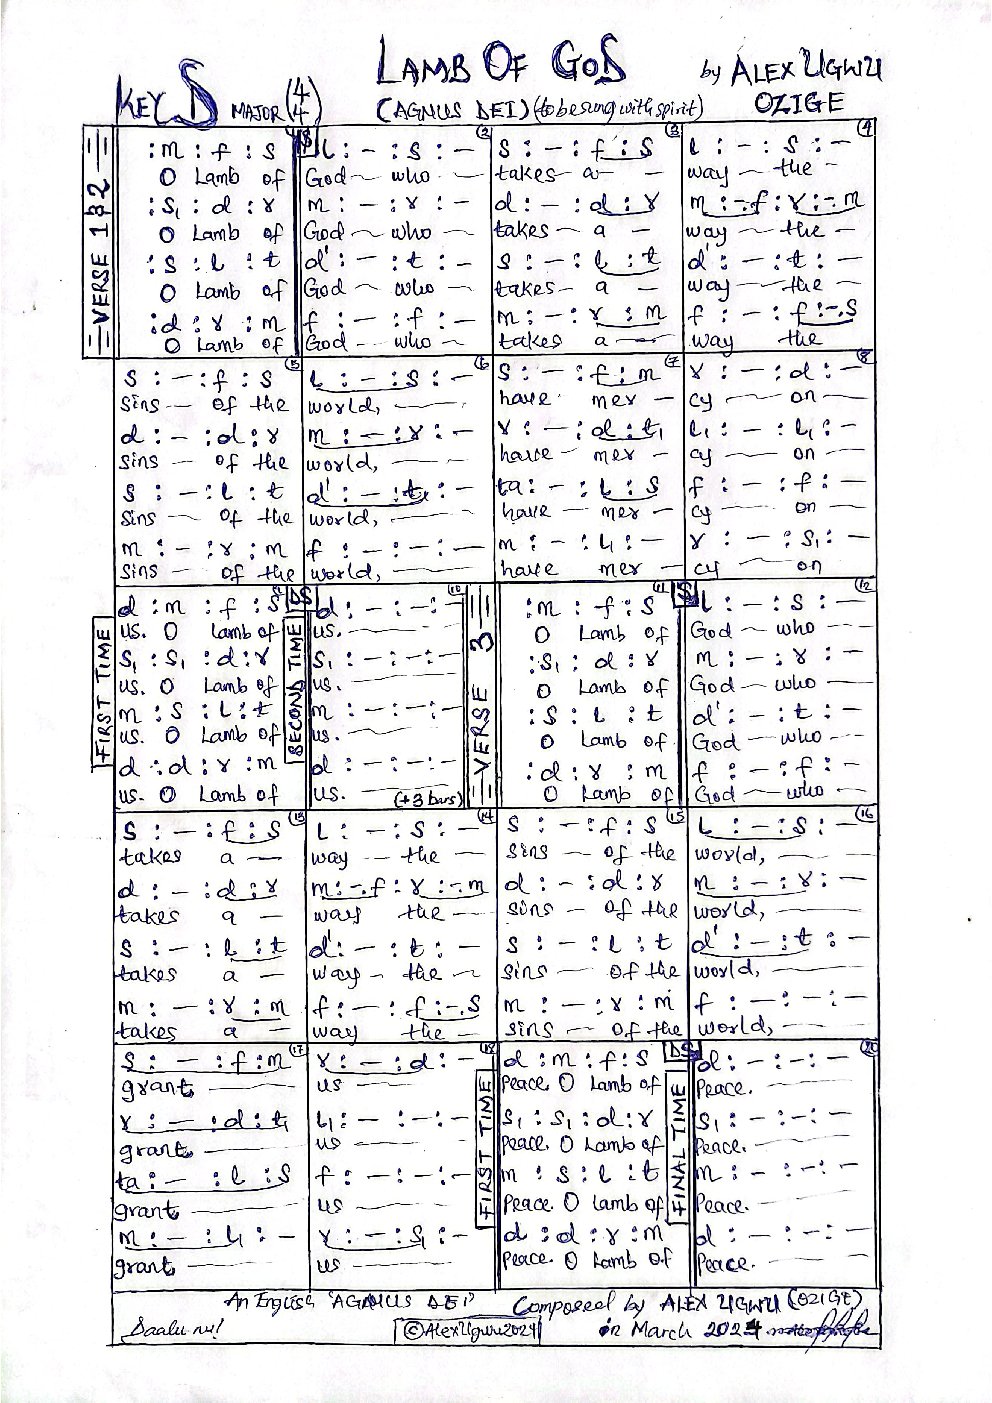 LAMB OF GOD
by ALEX UGWU
OZIGE
KEY D MAJOR (4/4)
(AGNUS DEI) (to be sung with spirit)
VERSE 1&2
:m : f : s | l : – : s : – ② | s : – : f : s ③ | l : – : s : – ④
O Lamb of | God – who – | takes – a – – | way – the –
:s₁ : d : r | m : – : r : – | d : – : d : r | m : –.f : r : –.m
O Lamb of | God – who – | takes – a – | way – the –
:s : l : t | d' : – : t : – | s : – : l : t | d' : – : t : –
O Lamb of | God – who – | takes – a – | way – the –
:d : r : m | f : – : f : – | m : – : r : m | f : – : f : –.s
O Lamb of | God – who – | takes a – | way the
s : – : f : s ⑤ | l : – : s : – ⑥ | s : – : f : m ⑦ | r : – : d : – ⑧
sins – of the | world, – | have mer – | cy – on –
d : – : d : r | m : – : r : – | r : – : d : t₁ | l₁ : – : l₁ : –
sins – of the | world, – | have – mer – | cy – on –
s : – : l : t | d' : – : t : – | ta : – : l : s | f : – : f : –
sins – of the | world, – | have – mer – | cy – on –
m : – : r : m | f : – : – : – | m : – : l₁ : – | r : – : s₁ : –
sins – of the | world, – | have mer – | cy – on
FIRST TIME
SECOND TIME
VERSE 3
d : m : f : s DS | d : – : – : – ⑩ | :m : f : s ⑪ | l : – : s : – ⑫
us. O Lamb of | us. – | O Lamb of | God – who –
s₁ : s₁ : d : r | s₁ : – : – : – | :s₁ : d : r | m : – : r : –
us. O Lamb of | us. – | O Lamb of | God – who –
m : s : l : t | m : – : – : – | :s : l : t | d' : – : t : –
us. O Lamb of | us. – | O Lamb of | God – who –
d : d : r : m | d : – : – : – | :d : r : m | f : – : f : –
us. O Lamb of | us. (+3 bars) | O Lamb of | God – who –
s : – : f : s ⑬ | l : – : s : – ⑭ | s : – : f : s ⑮ | l : – : s : – ⑯
takes a – | way – the – | sins – of the | world, –
d : – : d : r | m : –.f : r : –.m | d : – : d : r | m : – : r : –
takes a – | way the – | sins – of the | world, –
s : – : l : t | d' : – : t : – | s : – : l : t | d' : – : t : –
takes a – | way – the – | sins – of the | world, –
m : – : r : m | f : – : f : –.s | m : – : r : m | f : – : – : –
takes a – | way the – | sins – of the | world, –
FIRST TIME
FINAL TIME
s : – : f : m ⑰ | r : – : d : – ⑱ | d : m : f : s DS | d : – : – : – ⑳
grant – | us – | Peace. O Lamb of | Peace. –
r : – : d : t₁ | l₁ : – : – : – | s₁ : s₁ : d : r | s₁ : – : – : –
grant – | us – | Peace. O Lamb of | Peace. –
ta : – : l : s | f : – : – : – | m : s : l : t | m : – : – : –
grant – | us – | Peace. O Lamb of | Peace. –
m : – : l₁ : – | r : – : s₁ : – | d : d : r : m | d : – : – : –
grant – | us – | Peace. O Lamb of | Peace. –
An English 'AGNUS DEI' Composed by ALEX UGWU (OZIGE)
Daalu nu! ©AlexUgwu2024 in March 2024